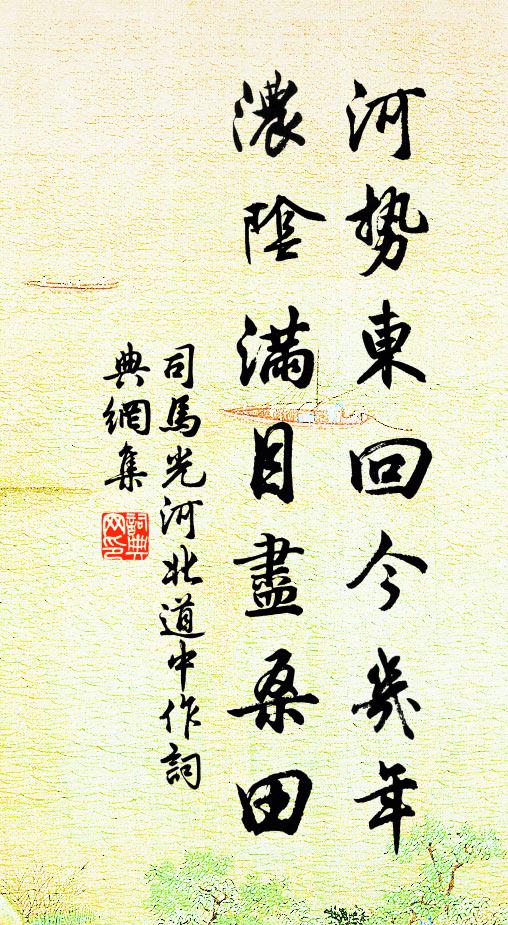 河勢東回今幾年
濃陰滿目盡桑田
司馬光河北道中作詞
典網集
詞典
网印